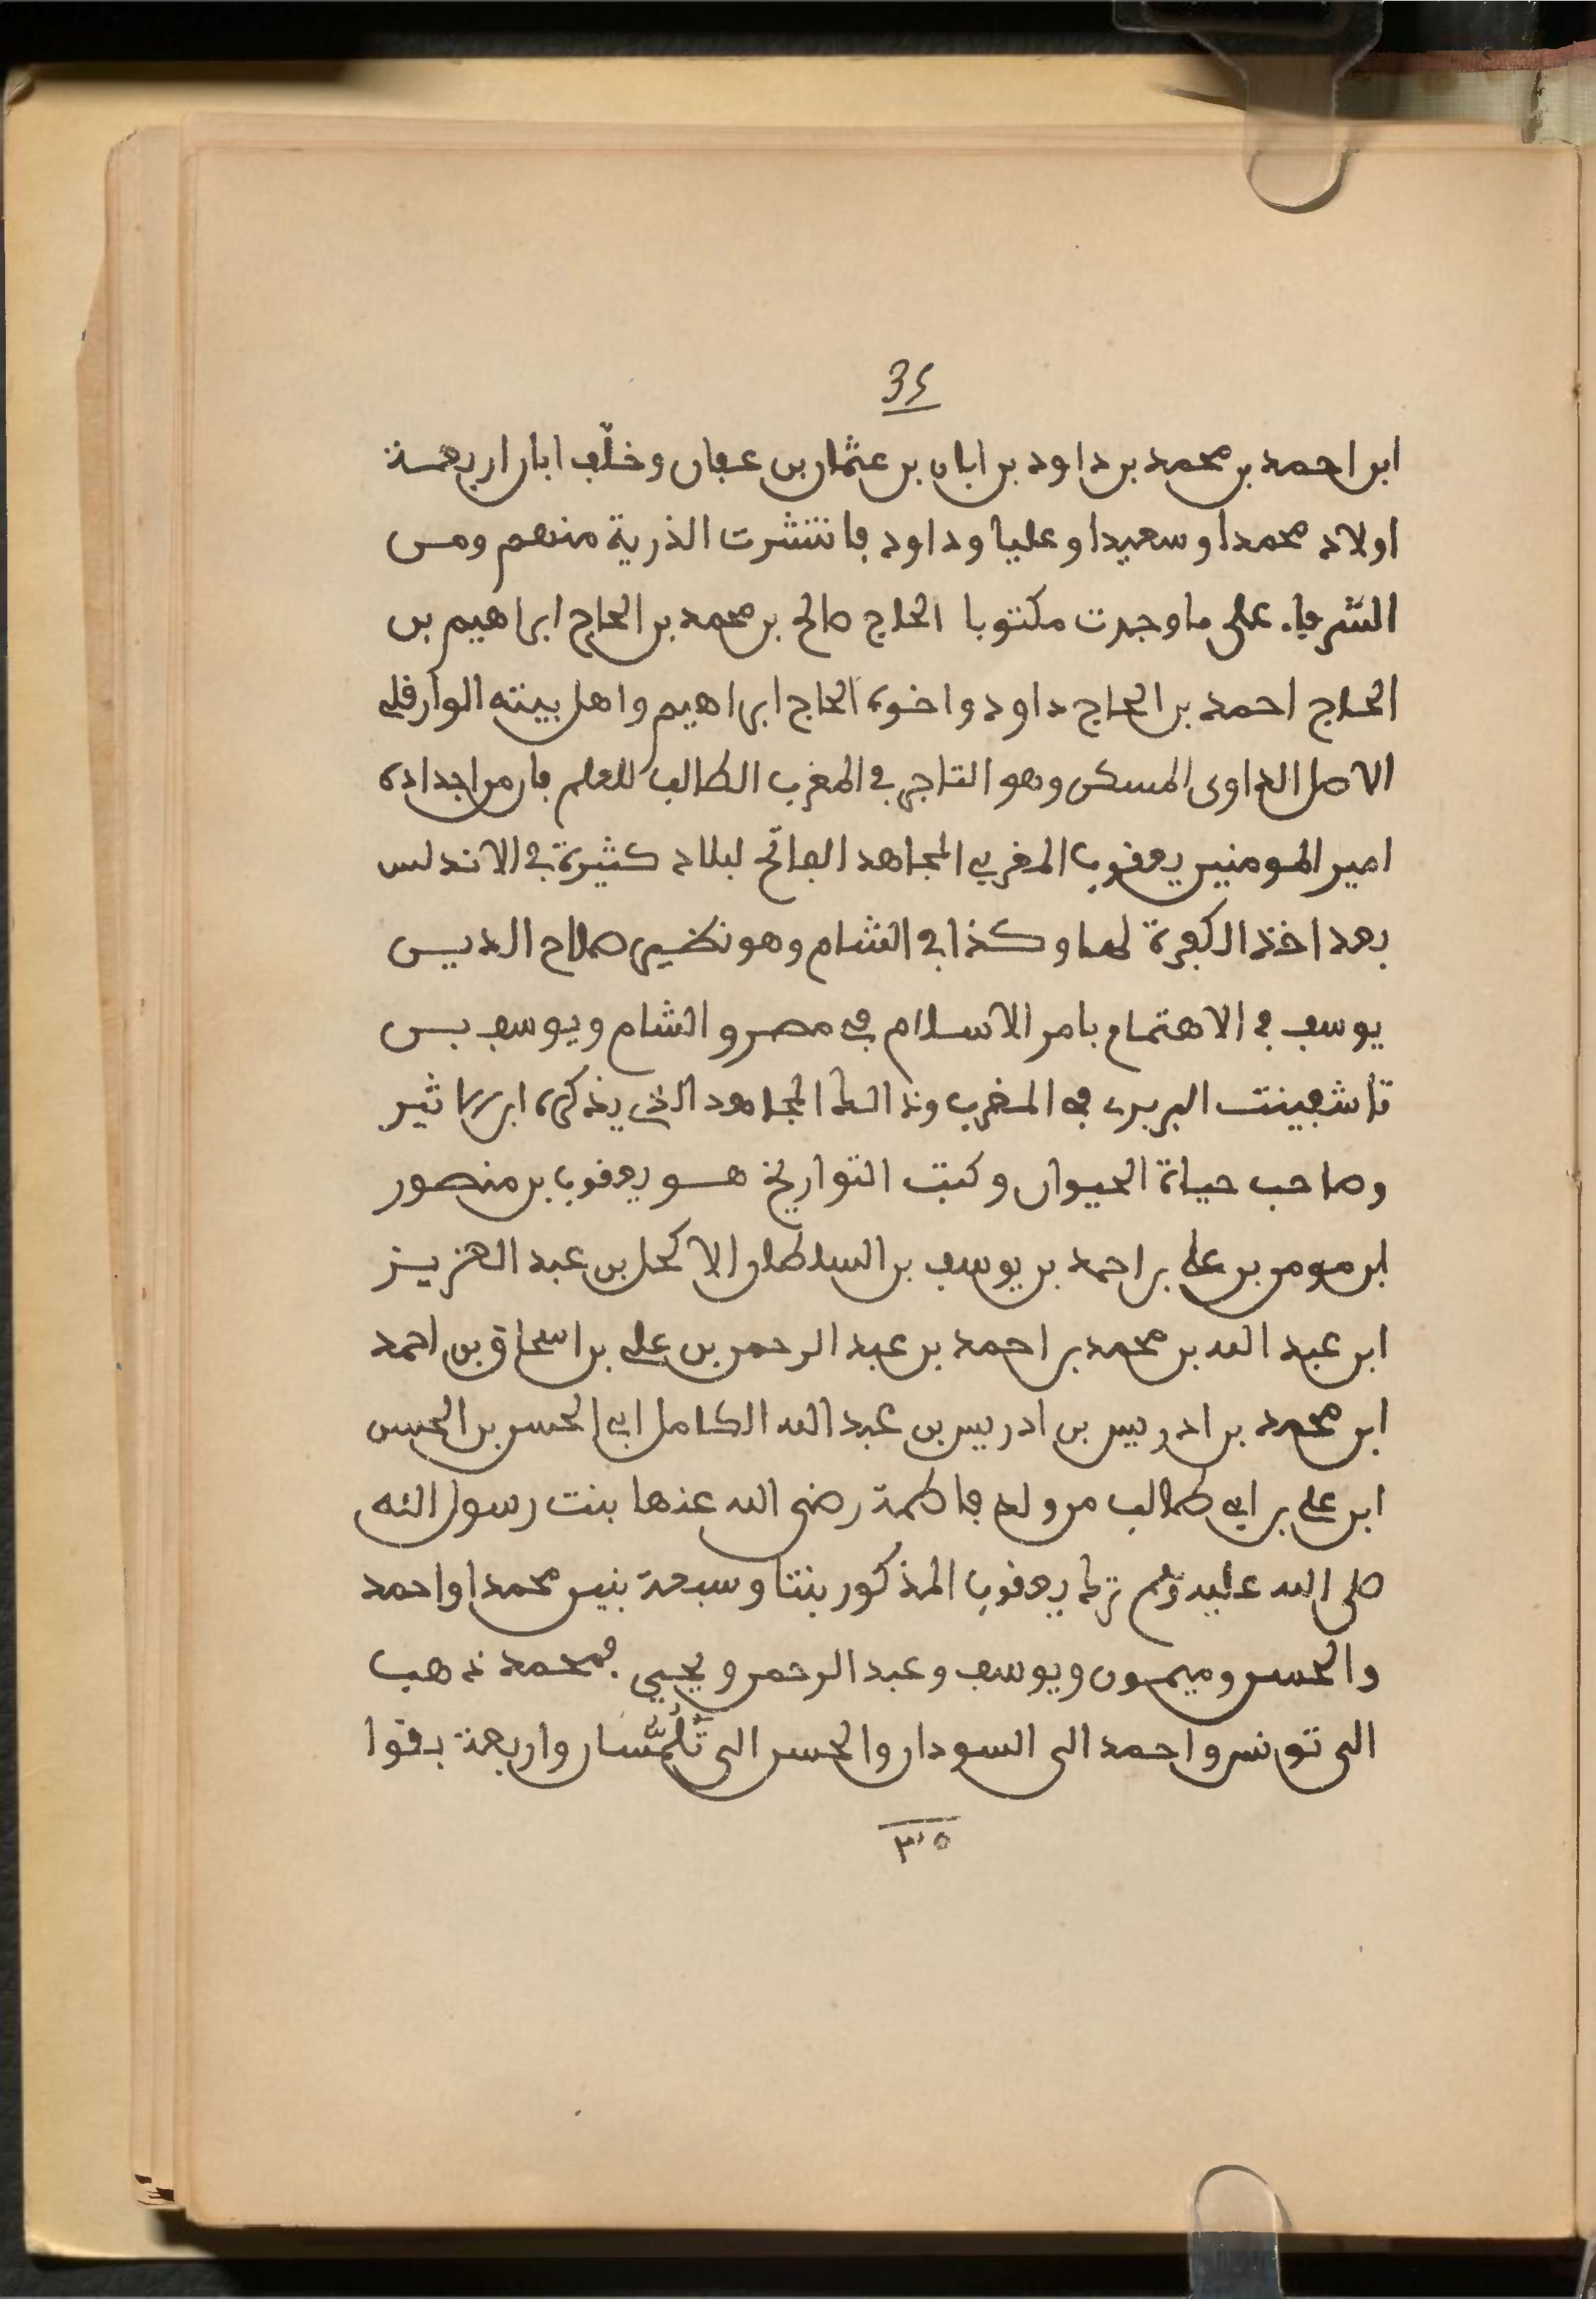 34
ابن احمد بن محمد بن داود بن ابان بن عثمان بن عفان وخلّف ابان اربعة
اولاد محمدا وسعيدا وعليا وداود فانتشرت الذرية منهم ومن
الشرفاء على ما وجدت مكتوبا الحاج صالح بن محمد بن الحاج ابراهيم بن
الحاج احمد بن الحاج داود واخوه الحاج ابراهيم واهل بيته الوارقلي
الاصل الغداوى المسكن وهو التاجر في المغرب الطالب للعلم فان من اجداده
امير المومنين يعقوب المغربي المجاهد الفاتح لبلاد كثيرة في الاندلس
بعد اخذ الكفرة لها وكذا في الشام وهو نظير صلاح الدين
يوسف في الاهتمام بامر الاسلام في مصر والشام ويوسف بن
تاشفينت البربري في المغرب وذالك المجاهد الذي يذكره ابن الاثير
وصاحب حياة الحيوان وكتب التواريخ هو يعقوب بن منصور
ابن مومن بن علي بن احمد بن يوسف بن السلطان الاكحل بن عبد العزيز
ابن عبد الله بن محمد بن احمد بن عبد الرحمن بن علي بن اسحاق بن احمد
ابن محمد بن ادريس بن ادريس بن عبد الله الكامل ابي الحسن بن الحسن
ابن علي بن ابي طالب من ولد فاطمة رضي الله عنها بنت رسول الله
صلى الله عليه وسلم ترك يعقوب المذكور بنتا وسبعة بنين محمدا واحمد
والحسن وميمون ويوسف وعبد الرحمن ويحيي فمحمد ذهب
الى تونس واحمد الى السودان والحسن الى تَلُمَّسَان واربعة بقوا